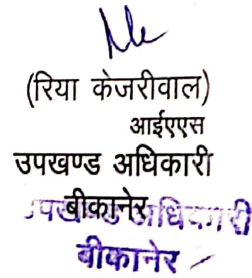 (रिया केजरीवाल)
आईएएस
उपखण्ड अधिकारी
बीकानेर
उपखण्ड अधिकारी
बीकानेर